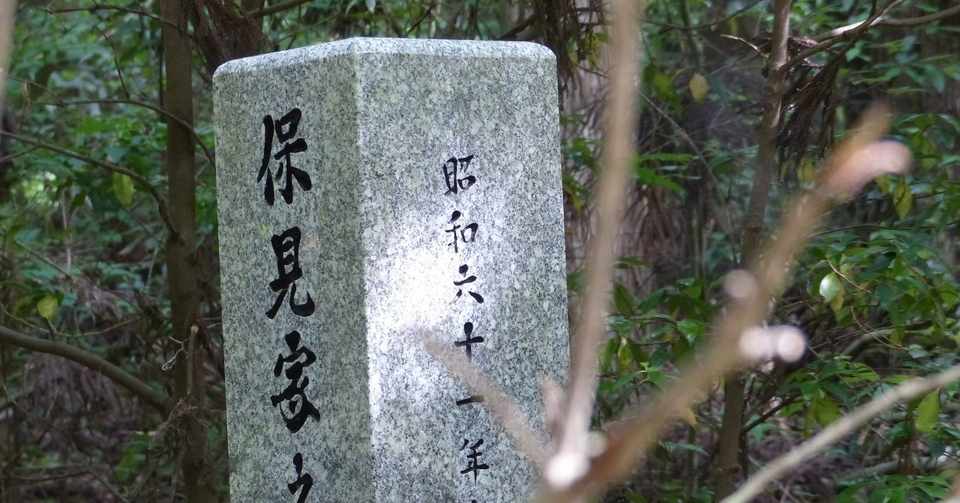 保見家之
昭和六十一年